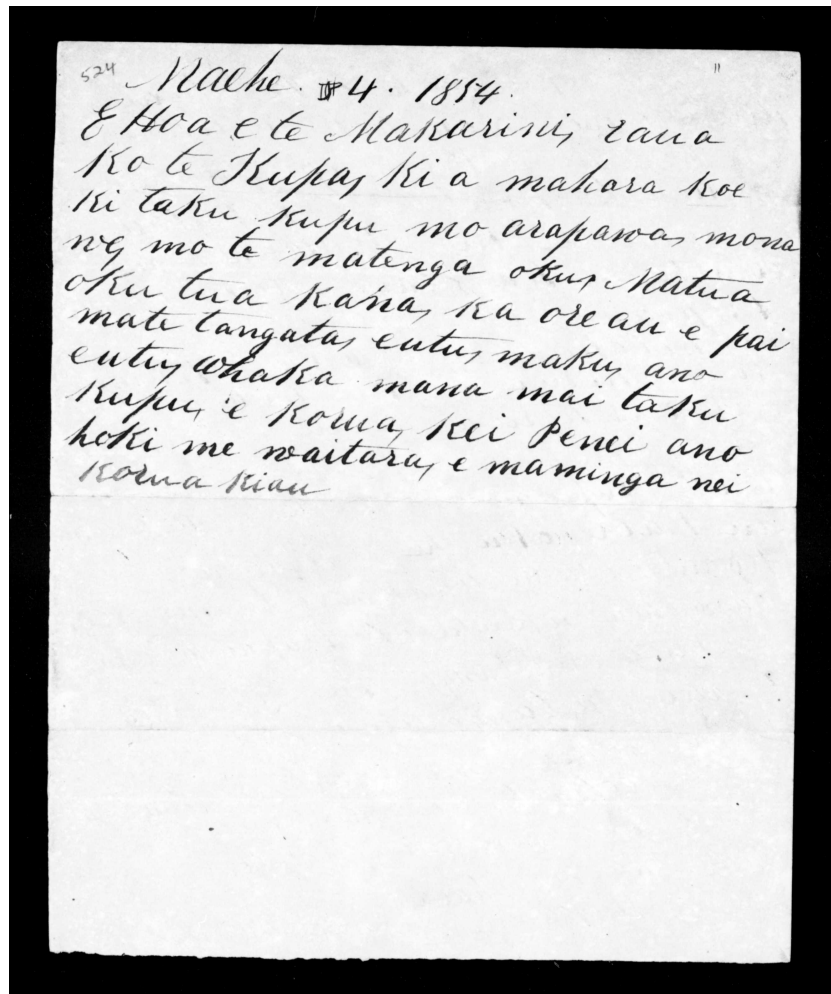 524
Maehe. 4. 1854.
E Hoa e te Makarini, raua
Ko te Kupa, Ki a mahara Koe
Ki taku Kupu mo arapawa, mona
nei, mo te matenga oku, Matua
oku tua Kana, Ka ore au e pai
mate tangata, eutu, maku, ano
eutu, Whaka mana mai taku
Kupu, e Korua, Kei Penei ano
hoki me waitara, e maminga nei
Korua Kiau